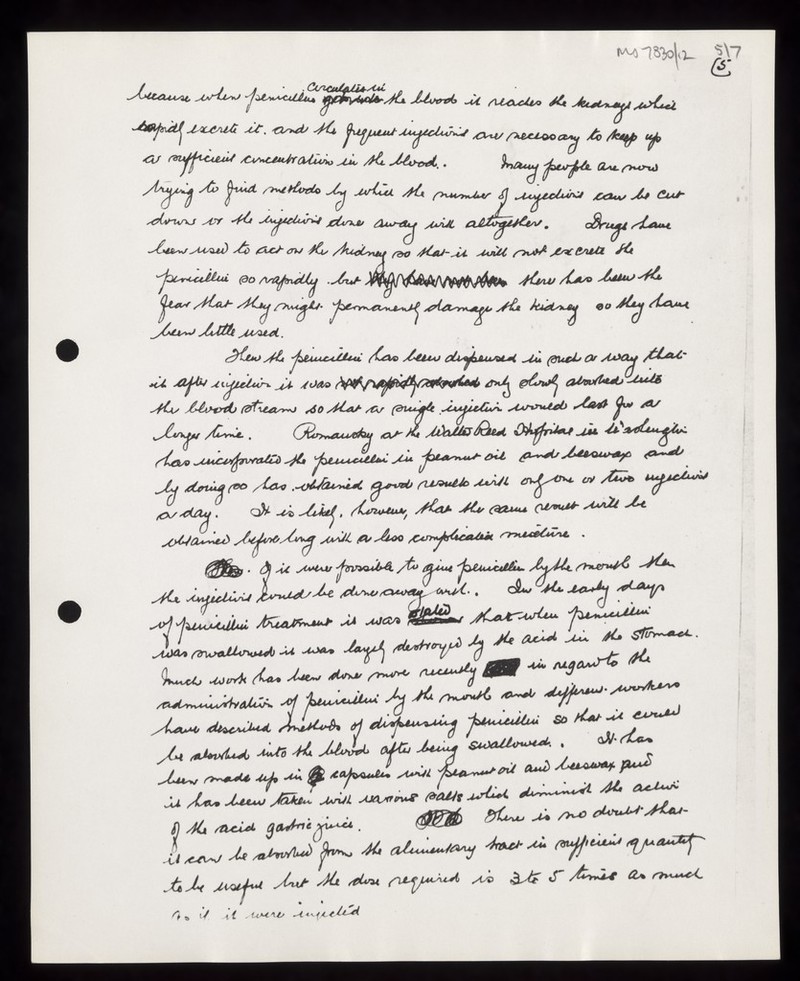 MS 7830/12 5/7
5
circulates in
because when penicillin the blood it reaches the kidneys which
rapidly excrete it. and the frequent injections are necessary to keep up
a sufficient concentration in the blood. Many people are now
trying to find methods by which the number of injections can be cut
down or the injections done away with altogether. Drugs have
been used to act on the kidney so that it will not excrete the
penicillin so rapidly but there has been the
fear that they might permanently damage the kidney so they have
been little used.
Then the penicillin has been dispensed in such a way that
it after injection it was only slowly absorbed into
the blood stream so that a single injection would last for a
longer time. Romansky at the Walter Reed Hospital in
has incorporated the penicillin in peanut oil and beeswax and
by doing so has obtained good results with only one or two injections
a day. It is likely, however, that the same result will be
obtained before long with a less complicated mixture.
If it were possible to give penicillin by the mouth then
the injections could be done away with. In the early days
of penicillin treatment it was stated that when penicillin
was swallowed it was largely destroyed by the acid in the stomach.
Much work has been done more recently in regard to the
administration of penicillin by the mouth and different workers
have described methods of dispensing penicillin so that it could
be absorbed into the blood after being swallowed. It has
been made up in capsules with peanut oil and beeswax and
it has been taken with various salts which diminish the action
of the acid gastric juice. There is no doubt that
it can be absorbed from the alimentary tract in sufficient quantity
to be useful but the dose required is 3 to 5 times as much
as if it were injected